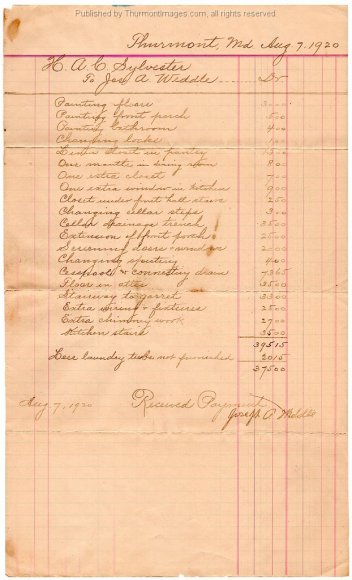 Published by ThurmontImages.com, all rights reserved
Thurmont, Md Aug 7. 1920
H. A. C. Sylvester
To Jos. A Weddle Dr
Painting floors
Painting front porch 500
Painting bathroom 400
Changing locks
in pantry
One mantle in dining room 800
One extra closet 700
One extra window in kitchen 900
Closet under front hall stairs 250
Changing cellar steps 300
Cellar drainage trench 3500
Extension of front porch
Screened doors & windows
Changing spouting 400
Cesspool & connecting drain 7365
Floor in attic 3500
Stairway to garret 3300
Extra wiring & fixtures 2500
Extra chimney work 2700
Kitchen stairs 3500
39515
Less laundry tubs not furnished 2015
37500
Aug 7, 1920 Received Payment
Joseph A Weddle